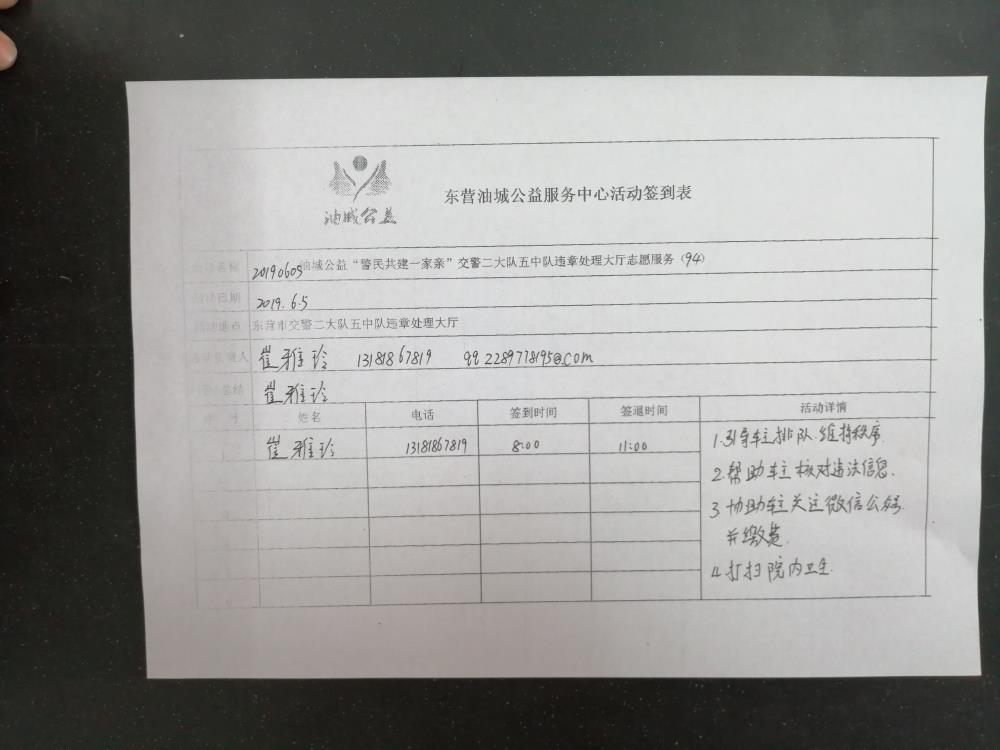 油城公益
东营油城公益服务中心活动签到表
20190605油城公益“警民共建一家亲”交警二大队五中队违章处理大厅志愿服务（94）
活动日期 2019.6.5
活动地点 东营市交警二大队五中队违章处理大厅
人 崔雅玲 13181867819 qq2289778195@.com
总结 崔雅玲
序号 姓名 电话 签到时间 签退时间 活动详情
崔雅玲 13181867819 8:00 11:00
1.引导车主排队.维持秩序.
2.帮助车主核对违法信息.
3.协助车主关注微信公众号
并缴费.
4.打扫院内卫生.